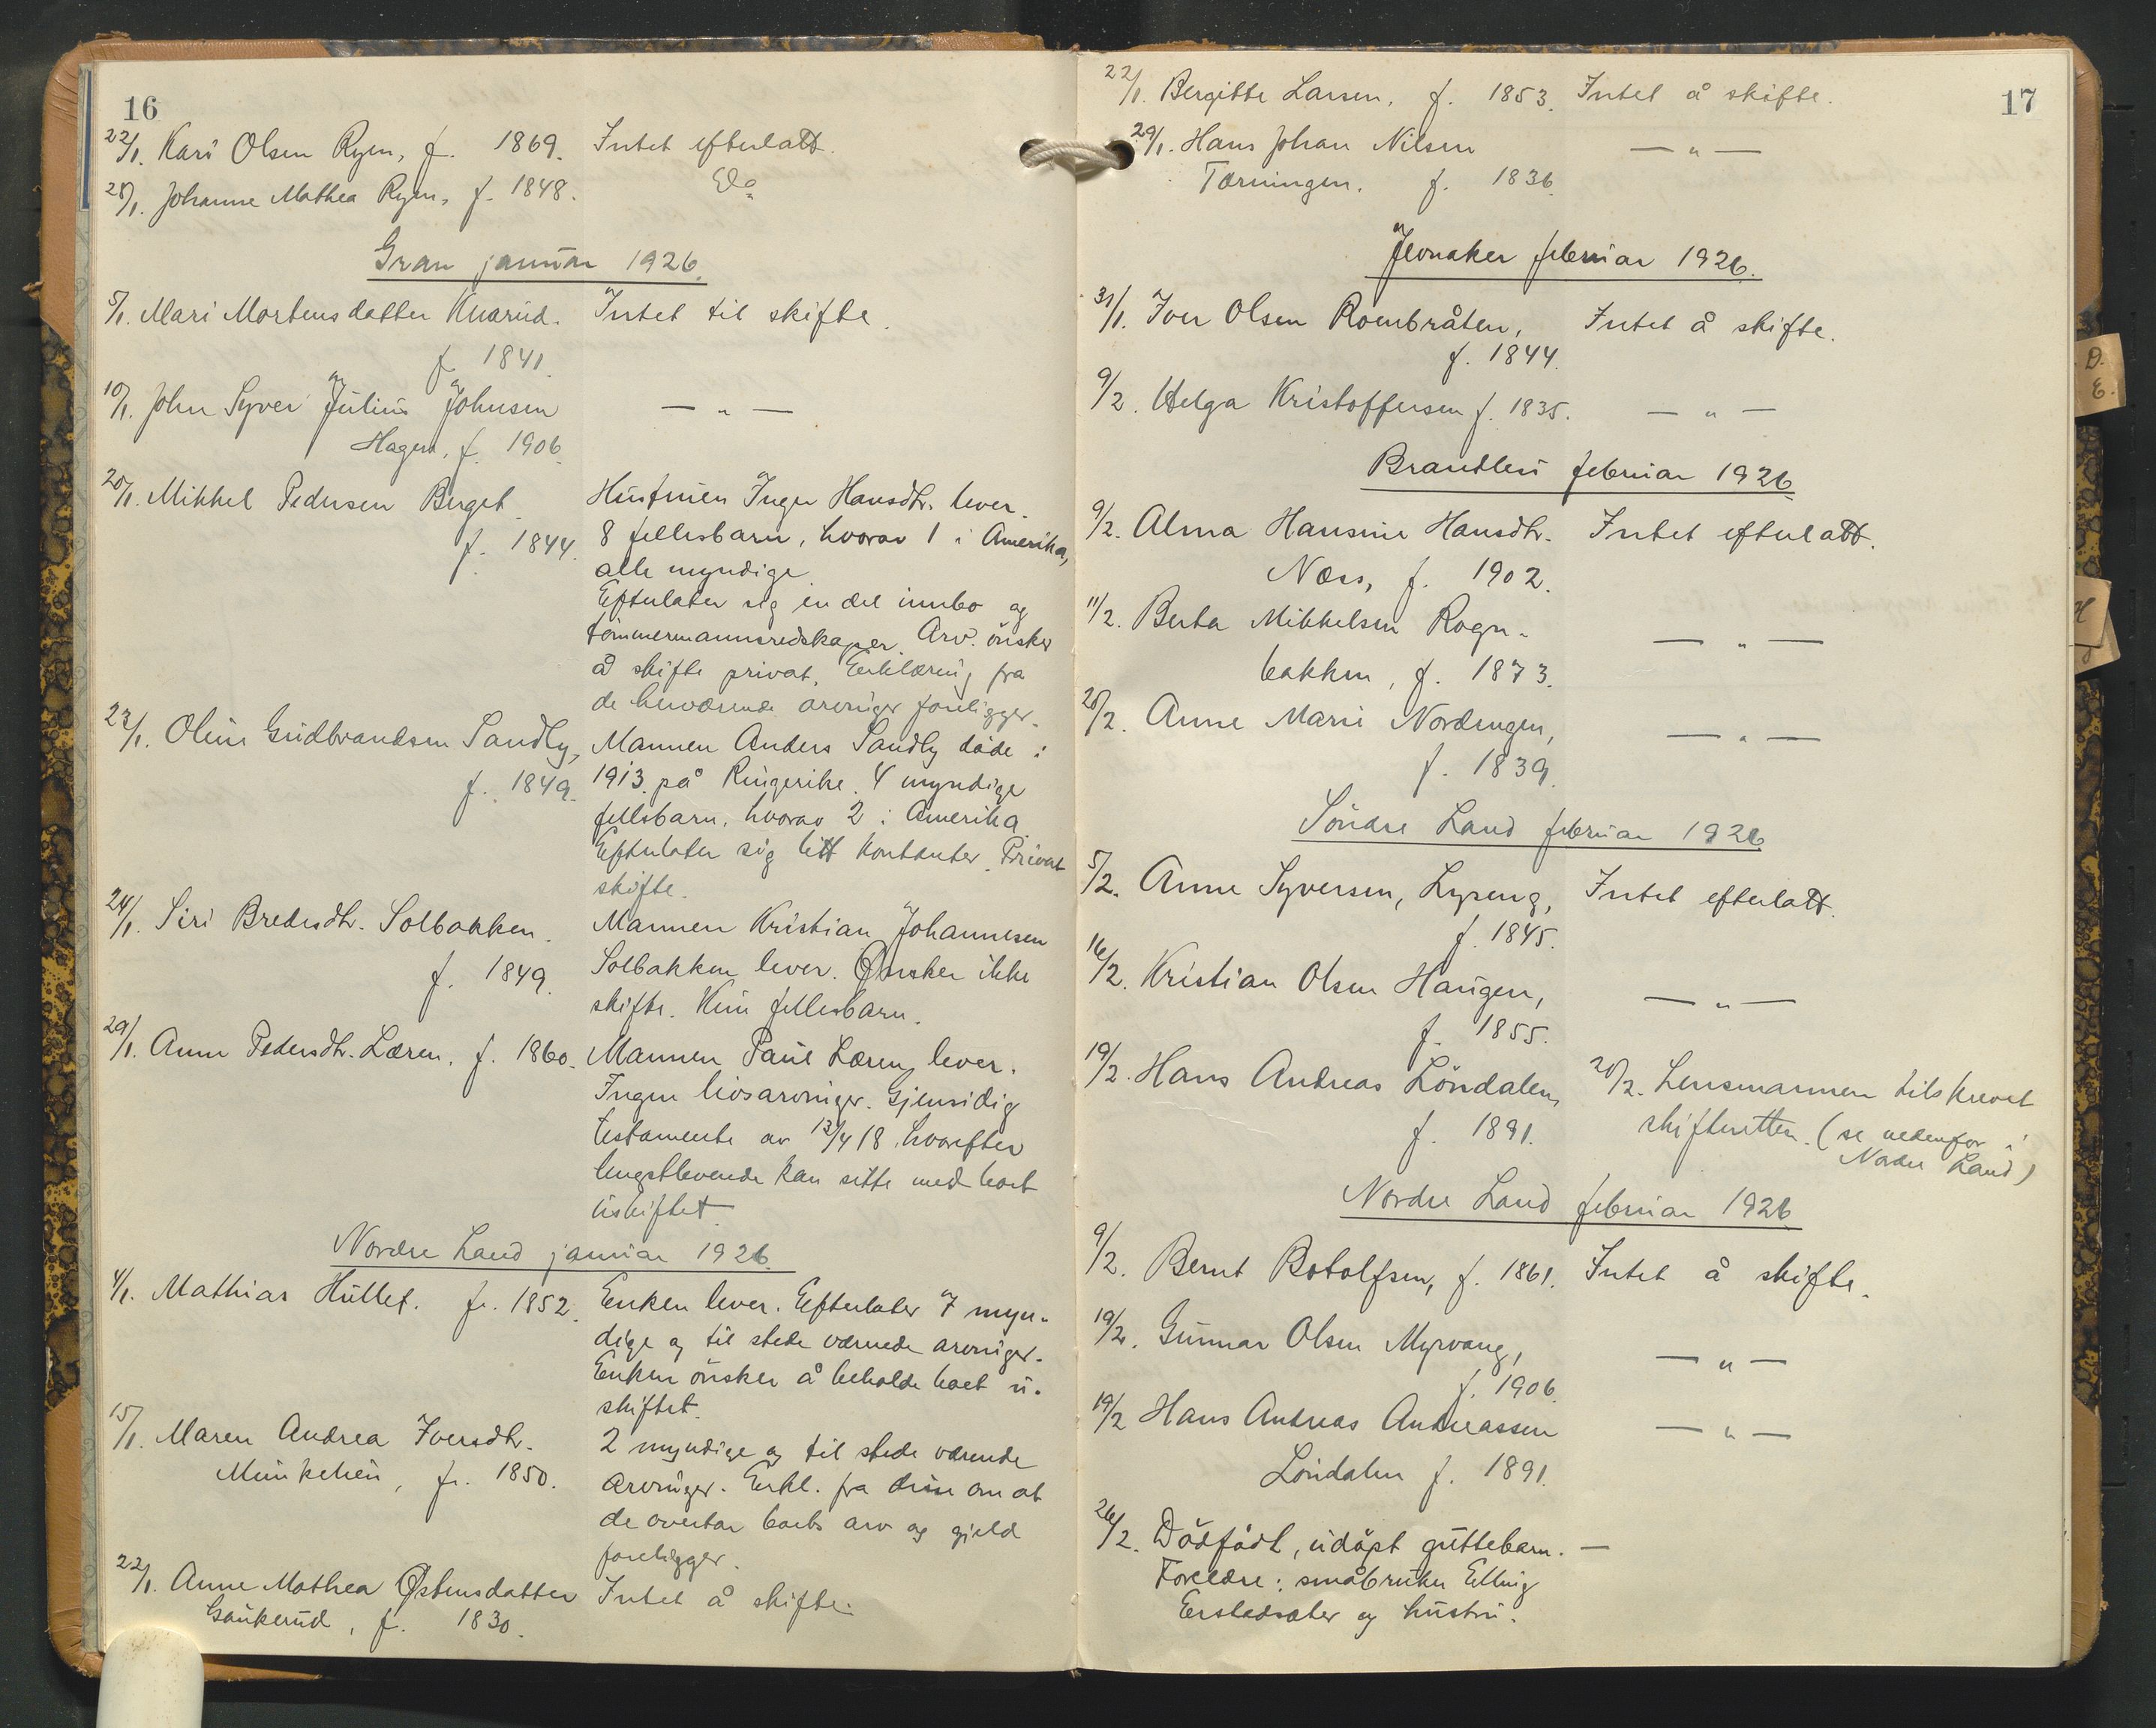 16
22/1. Kari Olsen Ryen, f. 1869. Intet efterlatt.
28/1. Johanne Mathea Ryen, f. 1848. Do
Gran januar 1926.
5/1. Mari Mortensdatter Knarud. Intet til skifte.
f. 1841.
10/1. John Syver Julius Johnsen — " —
Hagen, f. 1906.
20/1. Mikkel Pedersen Berget Hustruen Inger Hansdtr. lever.
f. 1844. 8 fellesbarn, hvorav 1 i Amerika,
alle myndige.
Efterlater sig en del innbo og
tømmermannsredskaper. Arv. ønsker
å skifte privat. Erklæring fra
de herværende arvinger foreligger.
23/1. Oline Gudbrandsen Sandly, Mannen Anders Sandly døde i
f. 1849. 1913 på Ringerike. 4 myndige
fellesbarn, hvorav 2 i Amerika.
Efterlater sig litt kontanter. Privat
skifte.
24/1. Siri Bredesdtr. Solbakken. Mannen Kristian Johannesen
f. 1849. Solbakken lever. Ønsker ikke
skifte. Kun fellesbarn.
29/1. Anne Pedersdtr. Læren, f. 1860. Mannen Paul Læren lever.
Ingen livsarvinger. Gjensidig
testamente av 13/4 18, hvorefter
lengstlevende kan sitte med boet
uskiftet.
Nordre Land januar 1926.
4/1. Mathias Hullet. f. 1852. Enken lever. Efterlater 7 myn-
dige og til stede værende arvinger.
Enken ønsker å beholde boet u-
skiftet.
15/1. Maren Andrea Iversdtr. 2 myndige og til stede værende
Munkelien, f. 1850. arvinger. Erkl. fra disse om at
de overtar boets arv og gjeld
foreligger.
22/1. Anne Mathea Østensdatter Intet å skifte.
Gaukerud, f. 1830.
17
22/1. Bergitte Larsen, f. 1853. Intet å skifte.
29/1. Hans Johan Nilsen — " —
Tærningen, f. 1836.
Jevnaker februar 1926.
31/1. Iver Olsen Roenbråten, Intet å skifte.
f. 1844.
9/2. Helga Kristoffersen f. 1835. — " —
Brandbu februar 1926
9/2. Alma Hansine Hansdtr. Intet efterlatt.
Næss, f. 1902.
11/2. Berta Mikkelsen Rogn- — " —
bakken, f. 1873.
20/2. Anne Marie Nordengen, — " —
f. 1839.
Søndre Land februar 1926
5/2. Anne Syversen, Lyseng, Intet efterlatt.
f. 1845.
16/2. Kristian Olsen Haugen, — " —
f. 1855.
19/2. Hans Andreas Løndalen, 20/2. Lensmannen tilskrevet
f. 1891. skifteretten. (se nedenfor i
Nordre Land)
Nordre Land februar 1926
9/2. Bernt Botolfsen, f. 1861. Intet å skifte.
19/2. Gunnar Olsen Myrvang, — " —
f. 1906.
19/2 Hans Andreas Andreassen — " —
Løndalen f. 1891.
26/2. Dødfødt, udøpt guttebarn. —
Foreldre: småbruker Elling
Erstadsæter og hustru.
D.
E.
H